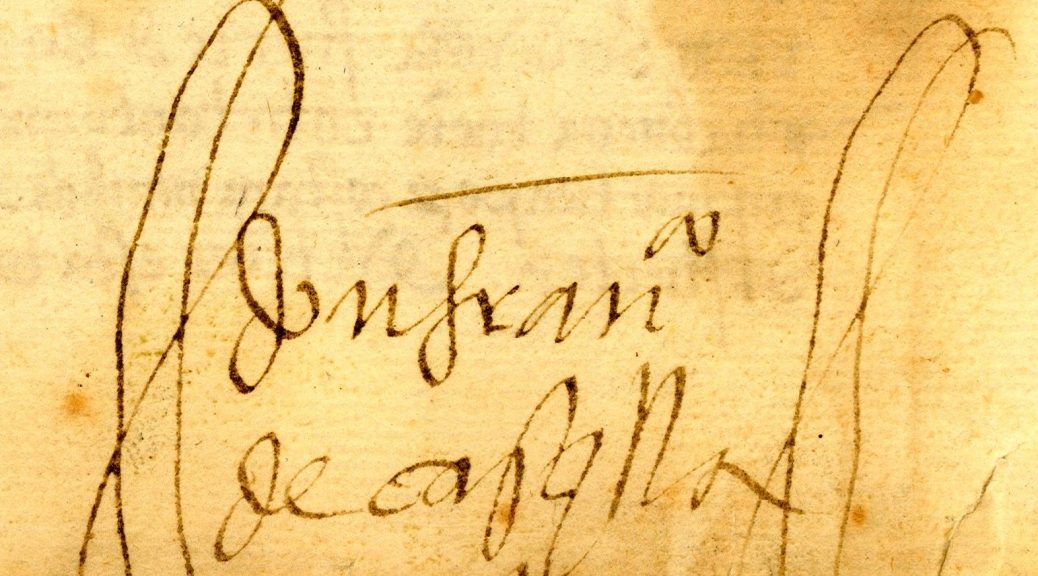 don fran^co
de castilla